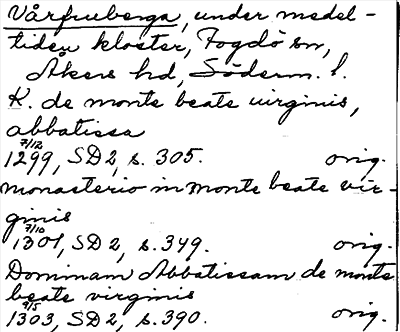 Vårfruberga, under medel-
tiden kloster, Fogdö sn,
Åkers hd, Söderm. l.
K. de monte beate virginis,
abbatissa
7/12
1299, SD 2, s. 305. orig.
monasterio in monte beate vir-
ginis
7/10
1301, SD 2, s. 349. orig.
Dominam Abbatissam de monte
beate virginis
9/5
1303, SD 2, s. 390. orig.